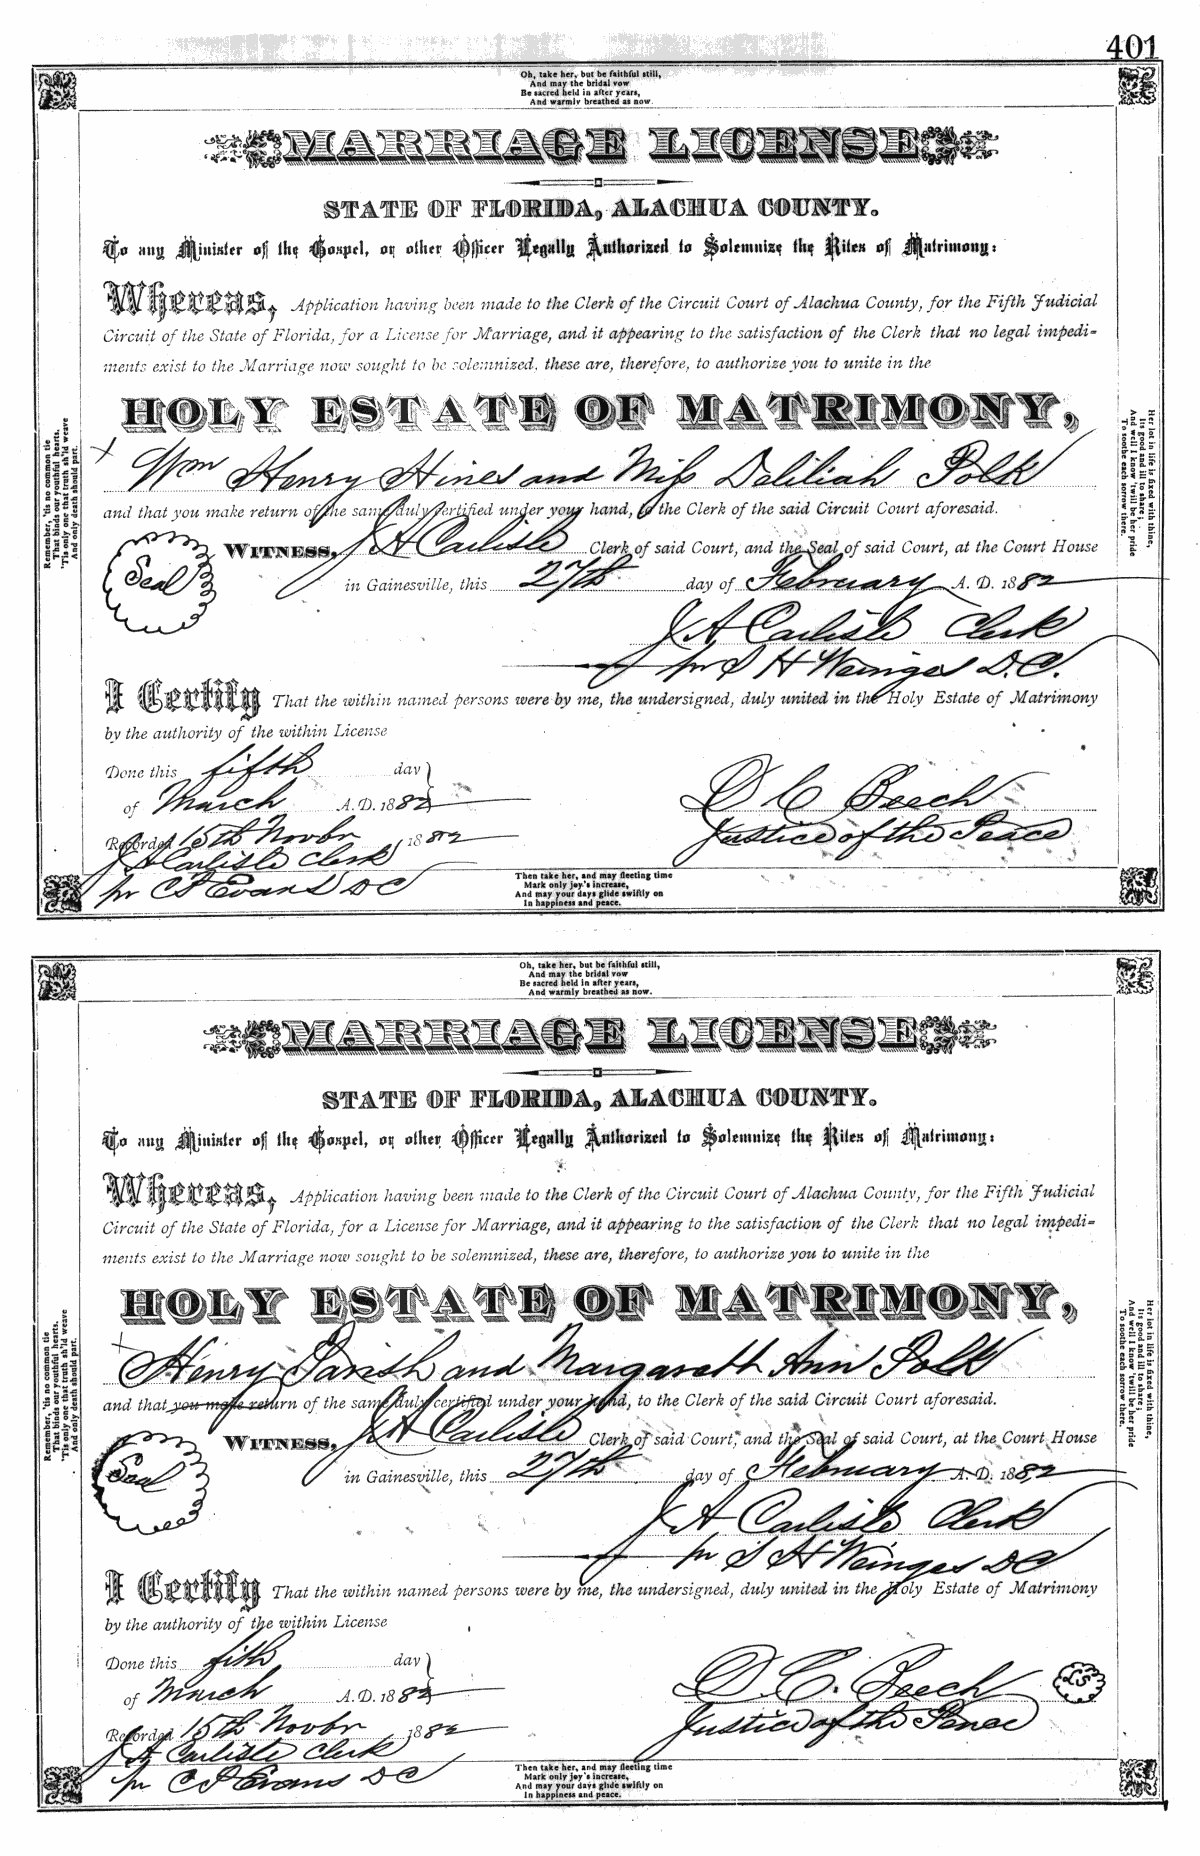 401
Oh, take her, but be faithful still,
And may the bridal vow
Be sacred held in after years,
And warmly breathed as now.
MARRIAGE LICENSE
STATE OF FLORIDA, ALACHUA COUNTY.
To any Minister of the Gospel, or other Officer Legally Authorized to Solemnize the Rites of Matrimony:
Whereas, Application having been made to the Clerk of the Circuit Court of Alachua County, for the Fifth Judicial
Circuit of the State of Florida, for a License for Marriage, and it appearing to the satisfaction of the Clerk that no legal impedi=
ments exist to the Marriage now sought to be solemnized, these are, therefore, to authorize you to unite in the
HOLY ESTATE OF MATRIMONY,
x Wm Henry Hines and Miss Deliliah Polk
and that you make return of the same duly certified under your hand, to the Clerk of the said Circuit Court aforesaid.
Seal
WITNESS, J A Carlisle Clerk of said Court, and the Seal of said Court, at the Court House
in Gainesville, this 27th day of February A. D. 1882
J A Carlisle Clerk
pr S H Weinges D.C.
I Certify That the within named persons were by me, the undersigned, duly united in the Holy Estate of Matrimony
by the authority of the within License
Done this fifth day
of March A.D. 1882
D C Beech
Justice of the Peace
Recorded 15th Novbr 1882
J A Carlisle Clerk
pr C P Evans DC
Then take her, and may fleeting time
Mark only joy's increase,
And may your days glide swiftly on
In happiness and peace.
Remember, 'tis no common tie
That binds our youthful hearts,
'Tis only one that truth sh'ld weave
And only death should part.
Her lot in life is fixed with thine,
Its good and ill to share;
And well I know 'twill be her pride
To soothe each sorrow there.
Oh, take her, but be faithful still,
And may the bridal vow
Be sacred held in after years,
And warmly breathed as now.
MARRIAGE LICENSE
STATE OF FLORIDA, ALACHUA COUNTY.
To any Minister of the Gospel, or other Officer Legally Authorized to Solemnize the Rites of Matrimony:
Whereas, Application having been made to the Clerk of the Circuit Court of Alachua County, for the Fifth Judicial
Circuit of the State of Florida, for a License for Marriage, and it appearing to the satisfaction of the Clerk that no legal impedi=
ments exist to the Marriage now sought to be solemnized, these are, therefore, to authorize you to unite in the
HOLY ESTATE OF MATRIMONY,
x Henry Parish and Margarett Ann Polk
and that you make return of the same duly certified under your hand, to the Clerk of the said Circuit Court aforesaid.
Seal
WITNESS, J A Carlisle Clerk of said Court, and the Seal of said Court, at the Court House
in Gainesville, this 27th day of February A. D. 1882
J A Carlisle Clerk
pr S H Weinges DC
I Certify That the within named persons were by me, the undersigned, duly united in the Holy Estate of Matrimony
by the authority of the within License
Done this fith day
of March A.D. 1882
D. C. Beech LS
Justice of the Peace
Recorded 15th Novbr 1882
J A Carlisle Clerk
pr C P Evans DC
Then take her, and may fleeting time
Mark only joy's increase,
And may your days glide swiftly on
In happiness and peace.
Remember, 'tis no common tie
That binds our youthful hearts,
'Tis only one that truth sh'ld weave
And only death should part.
Her lot in life is fixed with thine,
Its good and ill to share;
And well I know 'twill be her pride
To soothe each sorrow there.